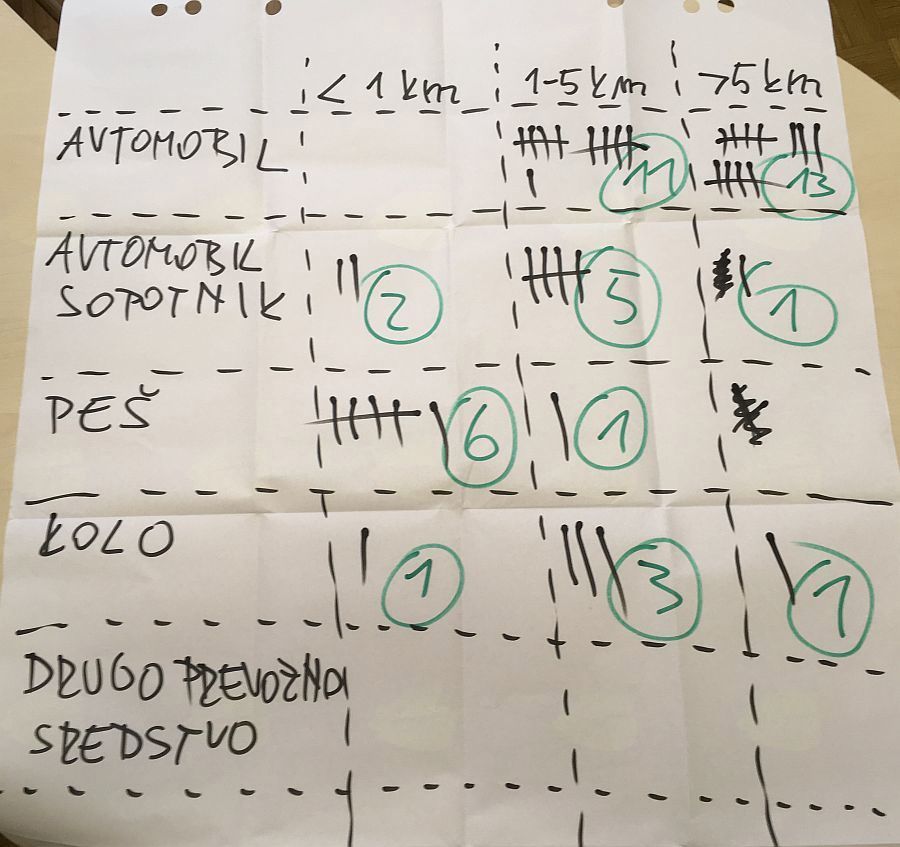 < 1 km 1-5 km >5 km
AVTOMOBIL 11 13
AVTOMOBIL
SOPOTNIK 2 5 1
PEŠ 6 1
KOLO 1 3 1
DRUGO PREVOZNO
SREDSTVO